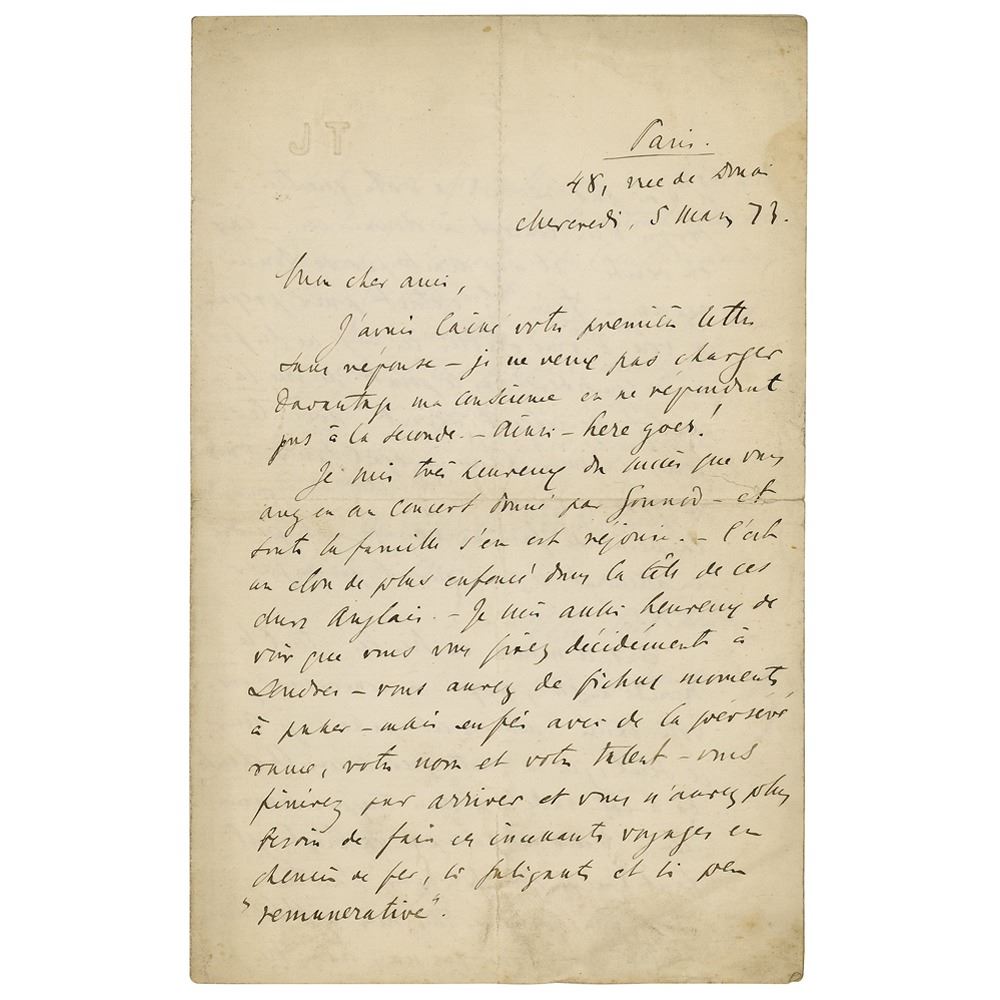 Paris.
48, rue de Douai
Mercredi, 5 Mars 73.
Mon cher ami,
J'avais laissé votre première lettre
sans réponse – je ne veux pas charger
davantage ma conscience en ne répondant
pas à la seconde. – Ainsi – here goes!
Je suis très heureux du succès que vous
avez eu au concert donné par Gounod – et
toute la famille s'en est réjouie. – C'est
un clou de plus enfoncé dans la tête de ces
durs Anglais. – Je suis aussi heureux de
voir que vous vous fixez décidément à
Londres – vous aurez de fichus moments
à passer – mais enfin avec de la persévé
rance, votre nom et votre talent – vous
finirez par arriver et vous n'aurez plus
besoin de faire ces incessants voyages en
chemin de fer, si fatigants et si peu
"remunerative".
TL